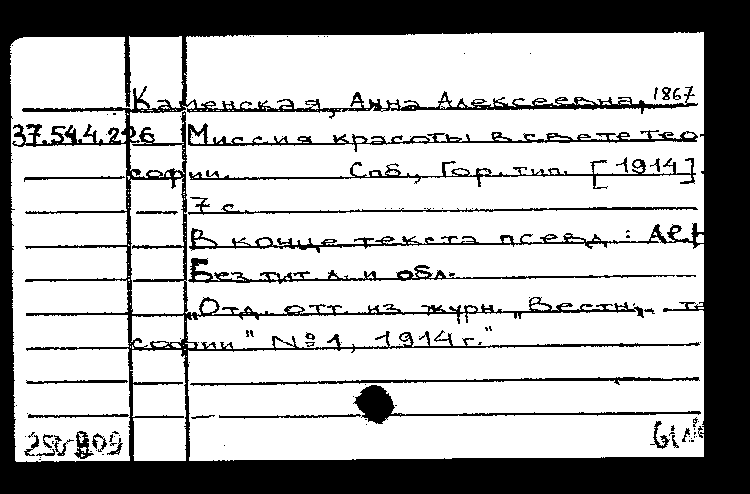 Каменская, Анна Алексеевна, 1867
37.54.4.226 Миссия красоты в свете тео-
софии. Спб., Гор. тип. [1914].
7 с.
В конце текста псевд.:
Без тит. л. и обл.
„Отд. отт. из журн. „Вестн.
софии" №1, 1914 г."